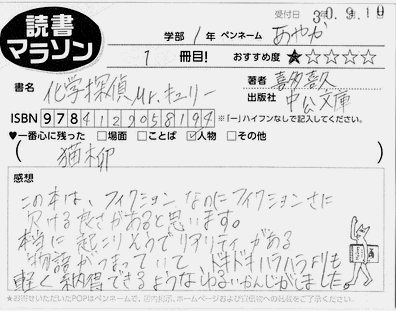 読書マラソン
受付日 30.9.10
学部 1年 ペンネーム あやか
1 冊目! おすすめ度 ★☆☆☆☆
書名 化学探偵Mr.キュリー
著者 喜多喜久
出版社 中公文庫
ISBN 9784122058194 ※「-」ハイフンなしで記入してください。
♥一番心に残った □場面 □ことば ☑人物 □その他
( 猫柳 )
感想
この本は、フィクションなのにフィクションさに
欠ける良さがあると思います。
本当に起こりえうでリアリティがある
物語がつまっていて ドキドキハラハラよりも
軽く納得できるようなゆるいかんじがしました。
★お寄せいただいたPOPはペンネームで、店内掲示、ホームページおよび宣伝物への転載をご了承ください。